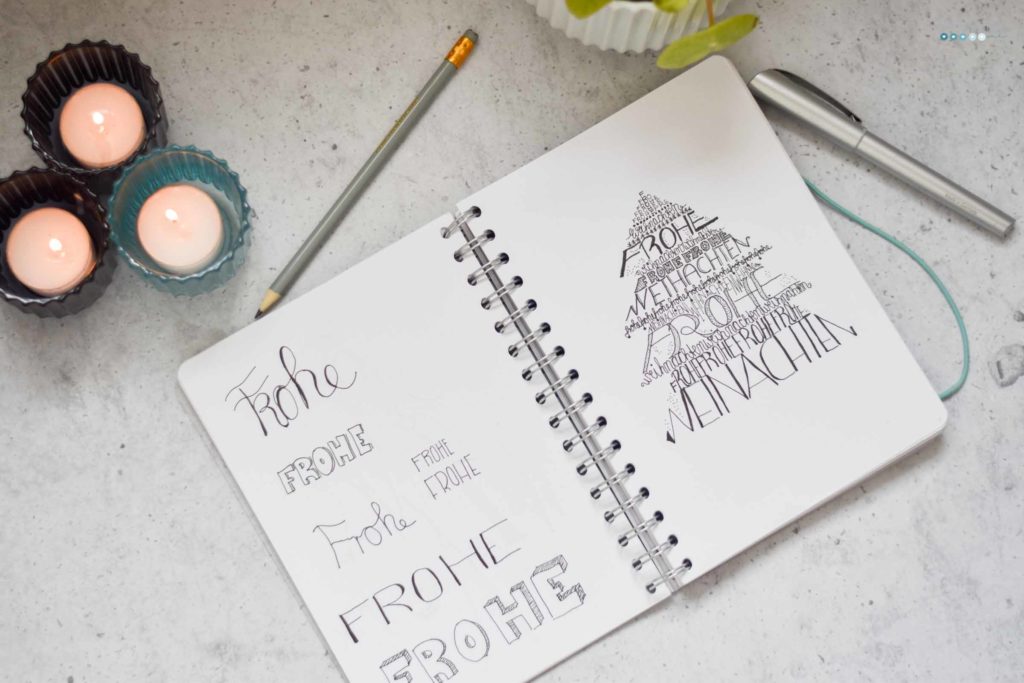 Frohe
FROHE
FROHE
FROHE
Frohe
FROHE
FROHE
FROHE
FROHE FROHE
WEIHACHTEN
FROHE
FROHEFROHEFROHEFROHE
WEINACHTEN